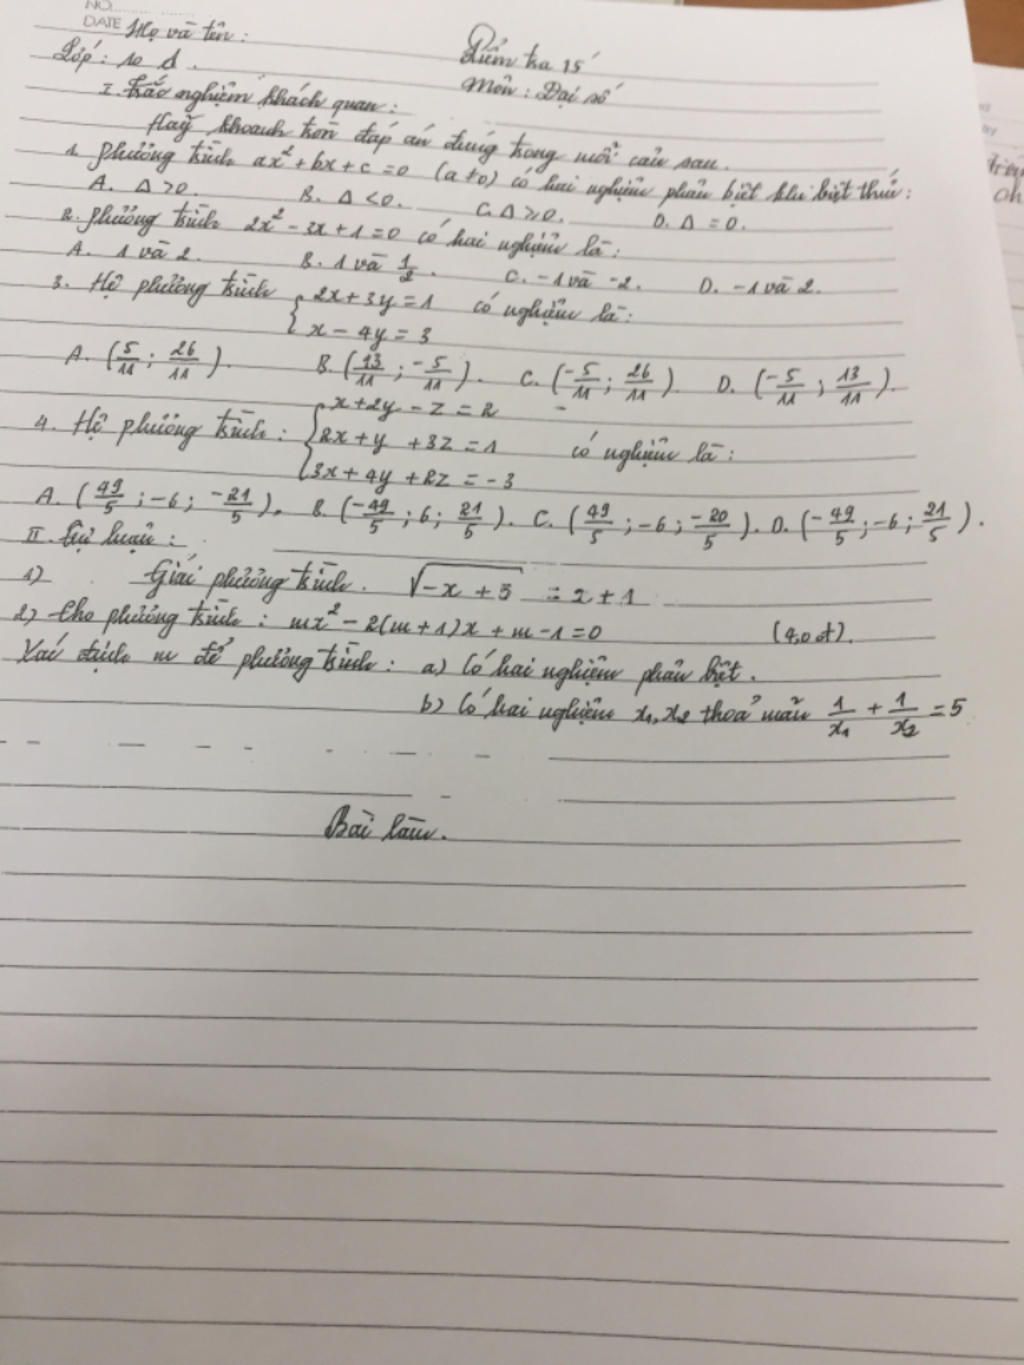 NO.
DATE Họ và tên:
Kiểm tra 15'
Lớp: 10 A.
Môn: Đại số
I. Trắc nghiệm khách quan:
Hãy khoanh tròn đáp án đúng trong mỗi câu sau.
1. Phương trình ax² + bx + c = 0 (a ≠ 0) có hai nghiệm phân biệt khi biệt thức:
A. Δ > 0. B. Δ < 0. C. Δ ≥ 0. D. Δ = 0.
2. Phương trình 2x² - 3x + 1 = 0 có hai nghiệm là:
A. 1 và 2. B. 1 và 1/2. C. -1 và -2. D. -1 và 2.
3. Hệ phương trình { 2x + 3y = 1 có nghiệm là:
x - 4y = 3
A. (5/11; 26/11). B. (13/11; -5/11). C. (-5/11; 26/11). D. (-5/11; 13/11).
x + 2y - z = 2
4. Hệ phương trình: { 2x + y + 3z = 1 có nghiệm là:
3x + 4y + 2z = -3
A. (49/5; -6; -21/5). B. (-49/5; 6; 21/5). C. (49/5; -6; -20/5). D. (-49/5; -6; 21/5).
II. Tự luận:
1) Giải phương trình. √(-x + 3) = 2 + 1
2) Cho phương trình: mx² - 2(m + 1)x + m - 1 = 0 (4,0 đ).
Xác định m để phương trình: a) Có hai nghiệm phân biệt.
b) Có hai nghiệm x₁, x₂ thoả mãn 1/x₁ + 1/x₂ = 5
Bài làm.